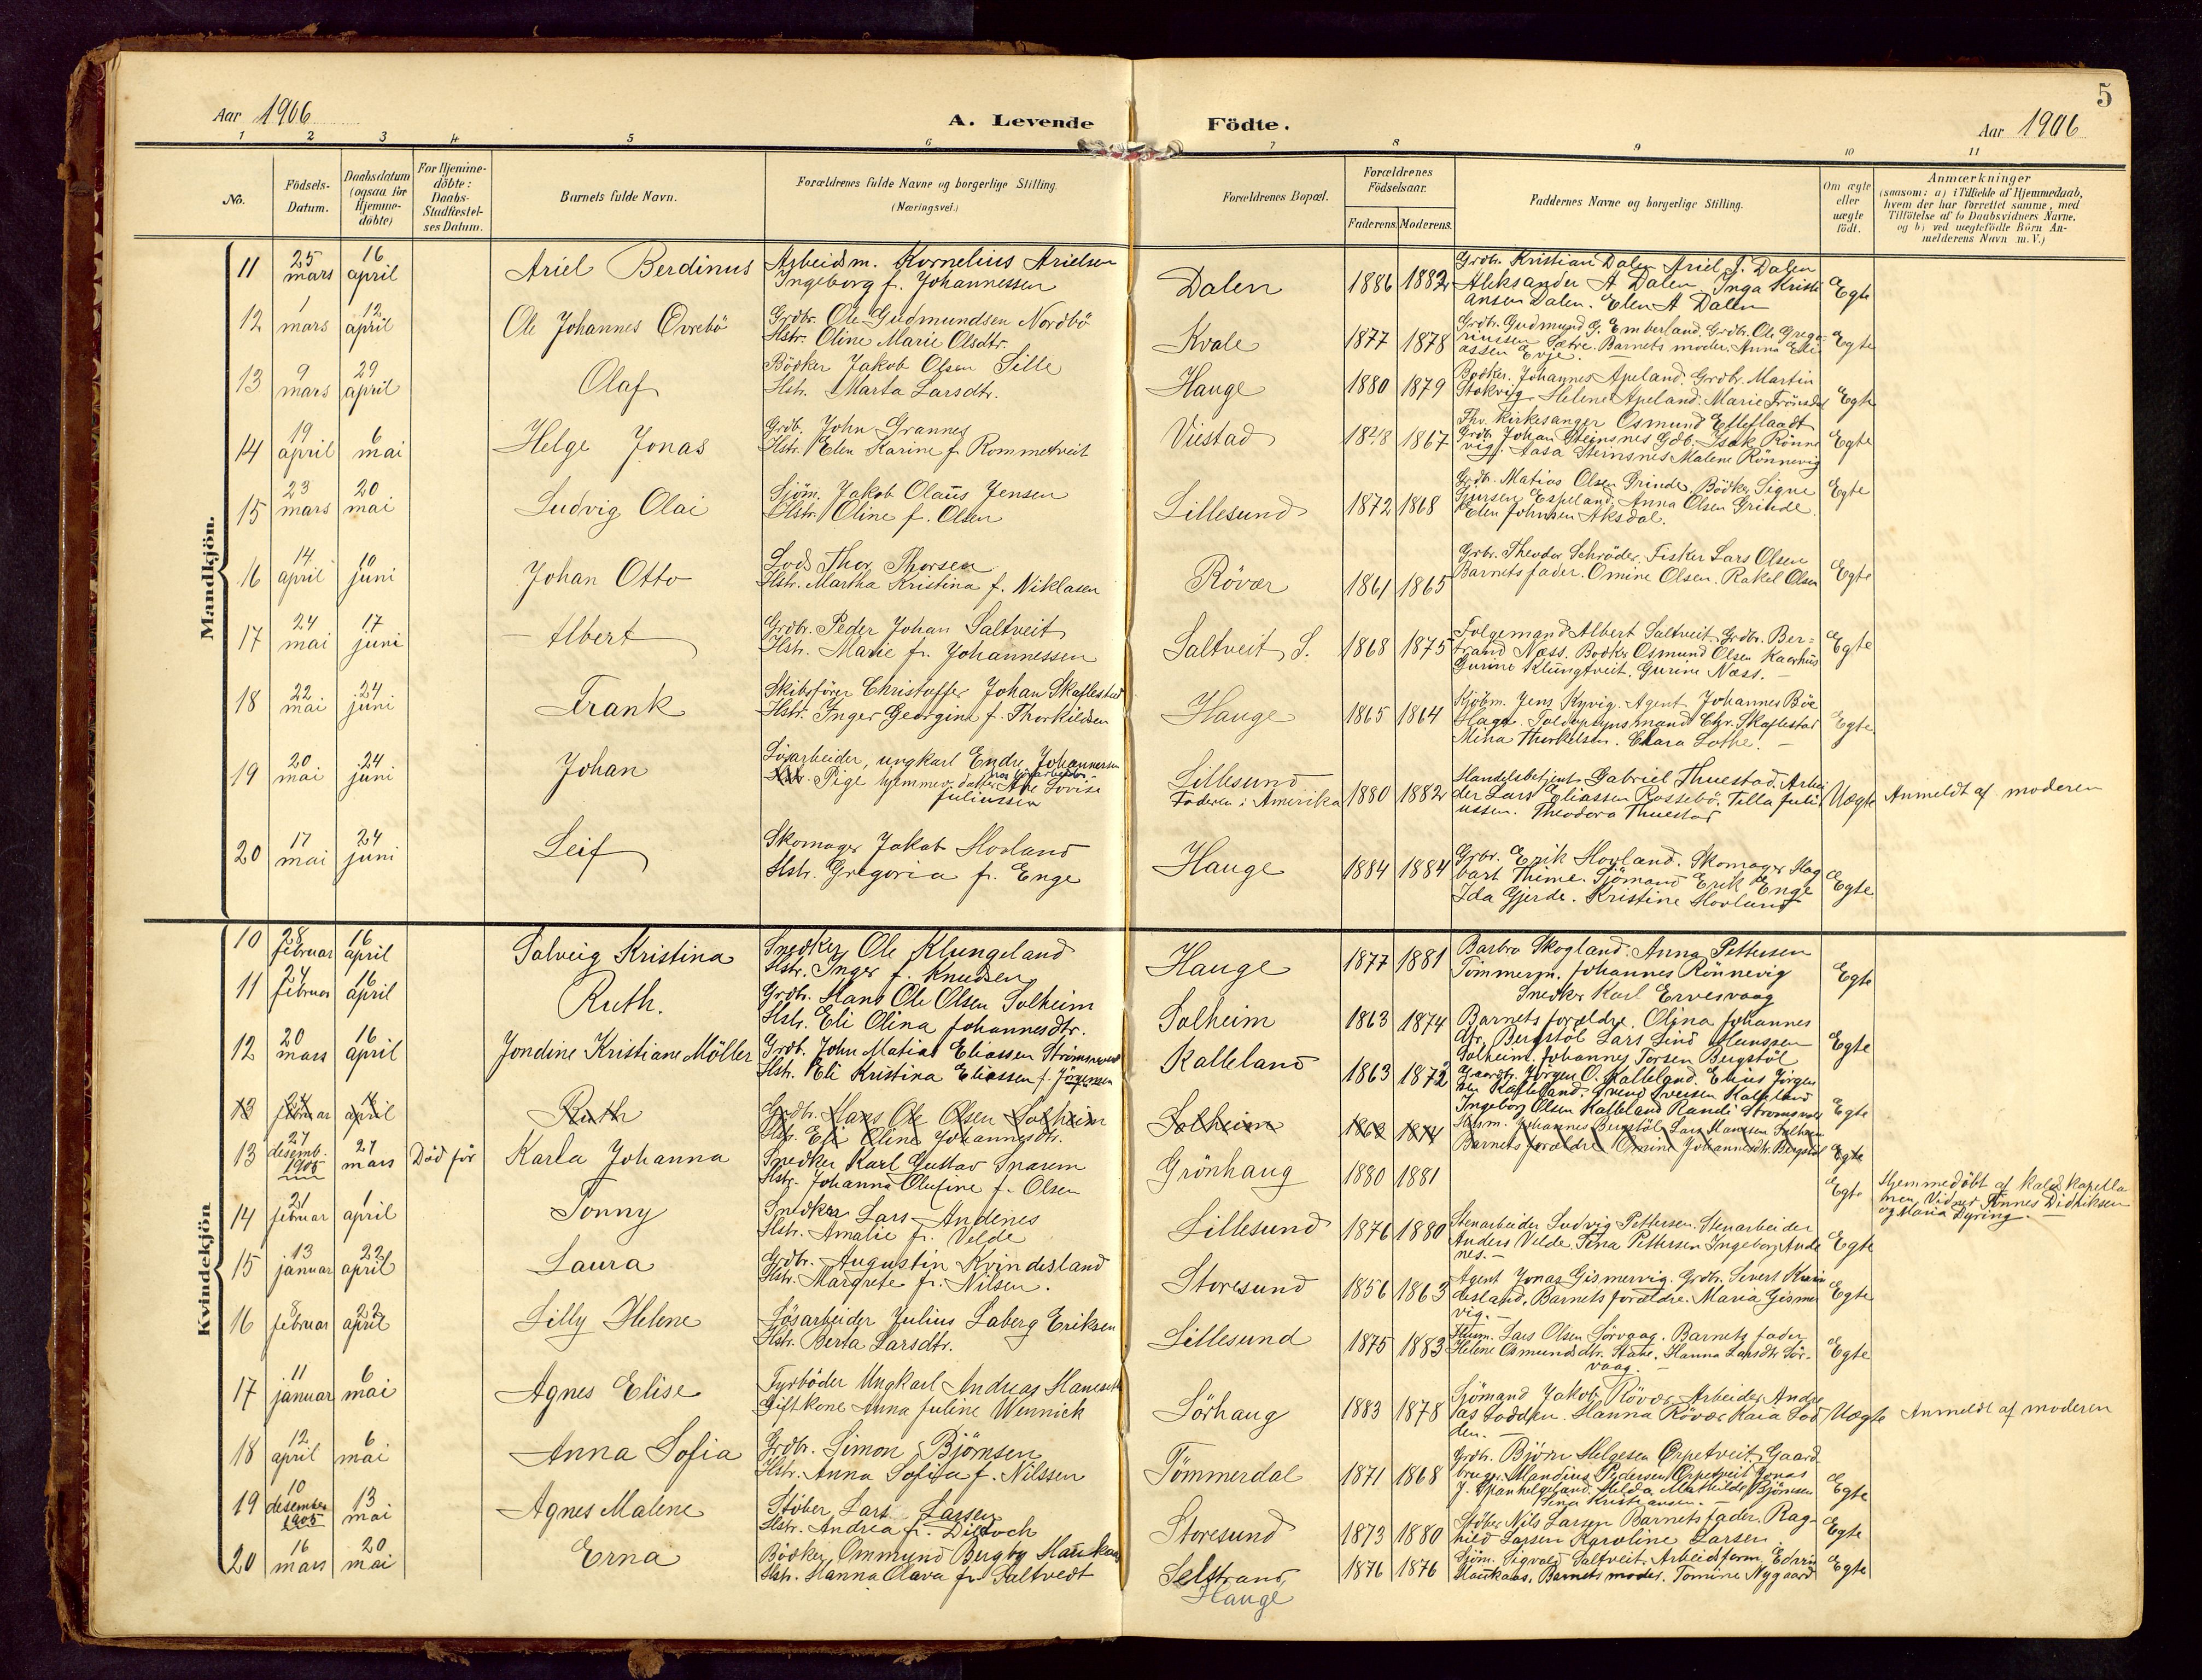 5
Aar 1906
A. Levende Födte.
Aar 1906
1 2 3 4 5 6 7 8 9 10 11
No.
Födsels-Datum.
Daabsdatum (ogsaa for Hjemme-döbte)
For Hjemme-döbte: Daabs-Stadfæstel-ses Datum.
Barnets fulde Navn.
Forældrenes fulde Navne og borgerlige Stilling.
(Næringsvei.)
Forældrenes Bopæl.
Forældrenes Födselsaar.
Faderens. Moderens.
Faddernes Navne og borgerlige Stilling.
Om ægte eller uægte födt.
Anmærkninger
(saasom: a) i Tilfælde af Hjemmedaab,
hvem der har forrettet samme, med
Tilföielse af to Daabsvidners Navne.
og b) ved uægtefödte Börn An-
melderens Navn m. V.)
Mandkjön.
11 25 mars 16 april Ariel Berdinus Arbeidsm. Kornelius Arielsen
Ingeborg f. Johannessen
Dalen 1886 1882 Grdb. Kristian Dalen Ariel J. Dalen
Aleksander A Dalen Inga Kristi
ansen Dalen. Elen A Dalen
Egte
12 1 mars 12 april Ole Johannes Övrebö Grdbr. Ole Gudmundsen Nordbö
Hstr. Oline Marie Olsdtr.
Kvale 1877 1878 Grdbr. Gudmund G. Emberland. Grdbr. Ole Grego-
riussen Sætre. Barnets moder. Anna Eli
assen Evje.
Egte
13 9 mars 29 april Olaf Bödker Jakob Olsen Sille
Hstr. Marta Larsdtr.
Hauge 1880 1879 Bödker. Johannes Apeland. Grdbr. Martin
Stakvig Helene Apeland. Marie
Egte
14 19 april 6 mai Helge Jonas Grdb. John Grannes
Hstr. Elen Karine f. Rommetveit
Viestad 1867 Fhv. Kirkesanger Osmund
Grdb. Johan Steinsnes Gdb. Isak Rönne
vig. Aasa Steinsnes Malene Rönnevig
Egte
15 23 mars 20 mai Ludvig Olai Sjöm. Jakob Olaus Jensen
Hstr. Oline f. Olsen
Lillesund 1872 1868 Grdb. Matias Olsen Grinde. Bödker Signe
Espeland. Anna Olsen Grinde.
Elen Johnsen Aksdal.
Egte
16 14 april 10 juni Johan Otto Lods Thor Thorsen
Hstr. Martha Kristina f. Niklasen
Rövær 1861 1865 Grbr. Theodor Schröder. Fisker Lars Olsen
Barnets fader. Omine Olsen. Rakel Olsen
Egte
17 24 mai 17 juni Albert Grdbr. Peder Johan Saltveit
Hstr. Marie f. Johannessen
Saltveit S. 1868 1875 Folgemand Albert Saltveit. Grdbr. Ber-
trand Næss. Bodker Osmund Olsen Kaarhus
Gurine Klungtveit. Gurine Næss. -
Egte
18 22 mai 24 juni Frank Skibsförer Christoffer Johan Skaflestad
Hstr. Inger Georgine f. Thorkildsen
Hauge 1865 1864 Kjöbm. Jens Kyvig. Agent Johannes Böe
Hage. Toldopsynsmand Chr. Skaflestad
Mina Thorkelsen. Clara Lothe. -
Egte
19 20 mai 24 juni Johan Lösarbeider, ungkarl Endre Johannessen
Pige hjemmev. datter Ane Lovise
Juliussen
Lillesund
Faderen i Amerika 1880 1882 Handelsbetjent Gabriel Thuestad. Arbei
der Lars Eliassen Rossebö. Tella Juli
ussen. Theodora Thuestad
Uægte Anmeldt af moderen
20 17 mai 24 juni Leif Skomager Jakob Hovland
Hstr. Gregoria f. Enge
Hauge 1884 1884 Grbr. Erik Hovland. Skomager Hag
bart Thime. Sjömand Erik Enge
Ida Gjerde. Kristine Hovland
Egte
Kvindekjön
10 28 februar 16 april Solveig Kristina Snedker Ole Klungeland
Hstr. Inger f. Knudsen
Hauge 1877 1881 Barbro Skogland. Anna Pettersen
Tömmerm. Johannes Rönnevig
Snedker Karl Ervesvaag
Egte
11 24 februar 16 april Ruth. Grdbr. Hans Ole Olsen Solheim
Hstr. Eli Olina Johannesdtr.
Solheim 1863 1874 Barnets forældre. Olina Johannes
dtr. Bergstöl Lars Hanssen
Solheim. Johannes Torsen Bergstöl
Egte
12 20 mars 16 april Jondine Kristiane Möller Grdb. John Matias Eliassen
Hstr. Eli Kristina Eliassen f. Jörgensen
Kalleland 1863 1872 Gaardbr. Jörgen O. Kalleland. Elius Jörgen
sen Kalleland. Svend Iversen Kalleland
Ingeborg Olsen Kalleland Randi
Egte
13 24 februar april Ruth Grdbr. Hans Ole Olsen Solheim
Hstr. Eli Oline Johannesdtr.
Solheim 1863 1874 Johannes Bergstöl Lars Hanssen Solheim
Barnets forældre Omine Johannesdtr. Bergstöl
Egte
13 27 desemb. 1905 27 mars Död för Karla Johanna Snedker Karl Gustav Snarem
Hstr. Johanna Olufine f. Olsen
Grönhaug 1880 1881
Egte Hjemmedöbt af kald. kapella
nen, Vidner Tönnes Didriksen
og Maria Dyring.
14 21 februar 1 april Tonny Snedker Lars Andenes
Hstr. Amalie f. Velde
Lillesund 1876 1880 Stenarbeider Ludvig Pettersen. Stenarbeider
Anders Velde. Tina Pettersen Ingeborg Ande
nes. -
Egte
15 13 januar 22 april Laura Grdbr. Augustin Kvindesland
Hstr. Margrete f. Nilsen.
Storesund 1856 1863 Agent Jonas Gismervig. Grdbr. Sivert Kvin
desland. Barnets forældre. Maria Gismer
vig. -
Egte
16 8 februar 22 april Lilly Helene Lösarbeider Julius Laberg Eriksen
Hstr. Berta Larsdtr.
Lillesund 1875 1883 Lars Olsen Sörvaag. Barnets fader
Helene Osmundsdtr. Hanna Larsdtr Sör-
vaag. -
Egte
17 11 januar 6 mai Agnes Elise Fyrböder Ungkarl Andreas Hansen
Gift kone Anna Juline Wennick
Sörhaug 1883 1878 Sjömand Jakob Rövær Arbeider Andre
as Lodden. Hanna Rövær Kaia Lod
den. -
Uægte Anmeldt af moderen
18 12 april 6 mai Anna Sofia Grdbr. Simon Björnsen
Hstr. Anna Sofie f. Nilssen
Tömmerdal 1871 1868 Grdb. Björn Helgesen Ørpetveit Gaard
bruger. Mandius Pedersen Ørpetveit Jonas
J. Spanhelgeland. Helda Mathilde Björnsen
Tina Kristiansen. -
Egte
19 10 desember 1905 13 mai Agnes Malene Stöber Lars Larsen
Hstr. Andrea f.
Storesund 1873 1880 Stöber Nils Larsen Barnets fader. Rag-
nild Larsen Karoline Larsen
Egte
20 16 mars 20 mai Erna Bödker Ommund Bergby Haukaas
Hstr. Hanna Olava f. Saltvedt
Selstrand,
Hauge
1876 1876 Sjöm. Sigvald Saltveit. Arbeidsform. Edvin
Haukaas. Barnets moder. Tomine Nygaard
Egte